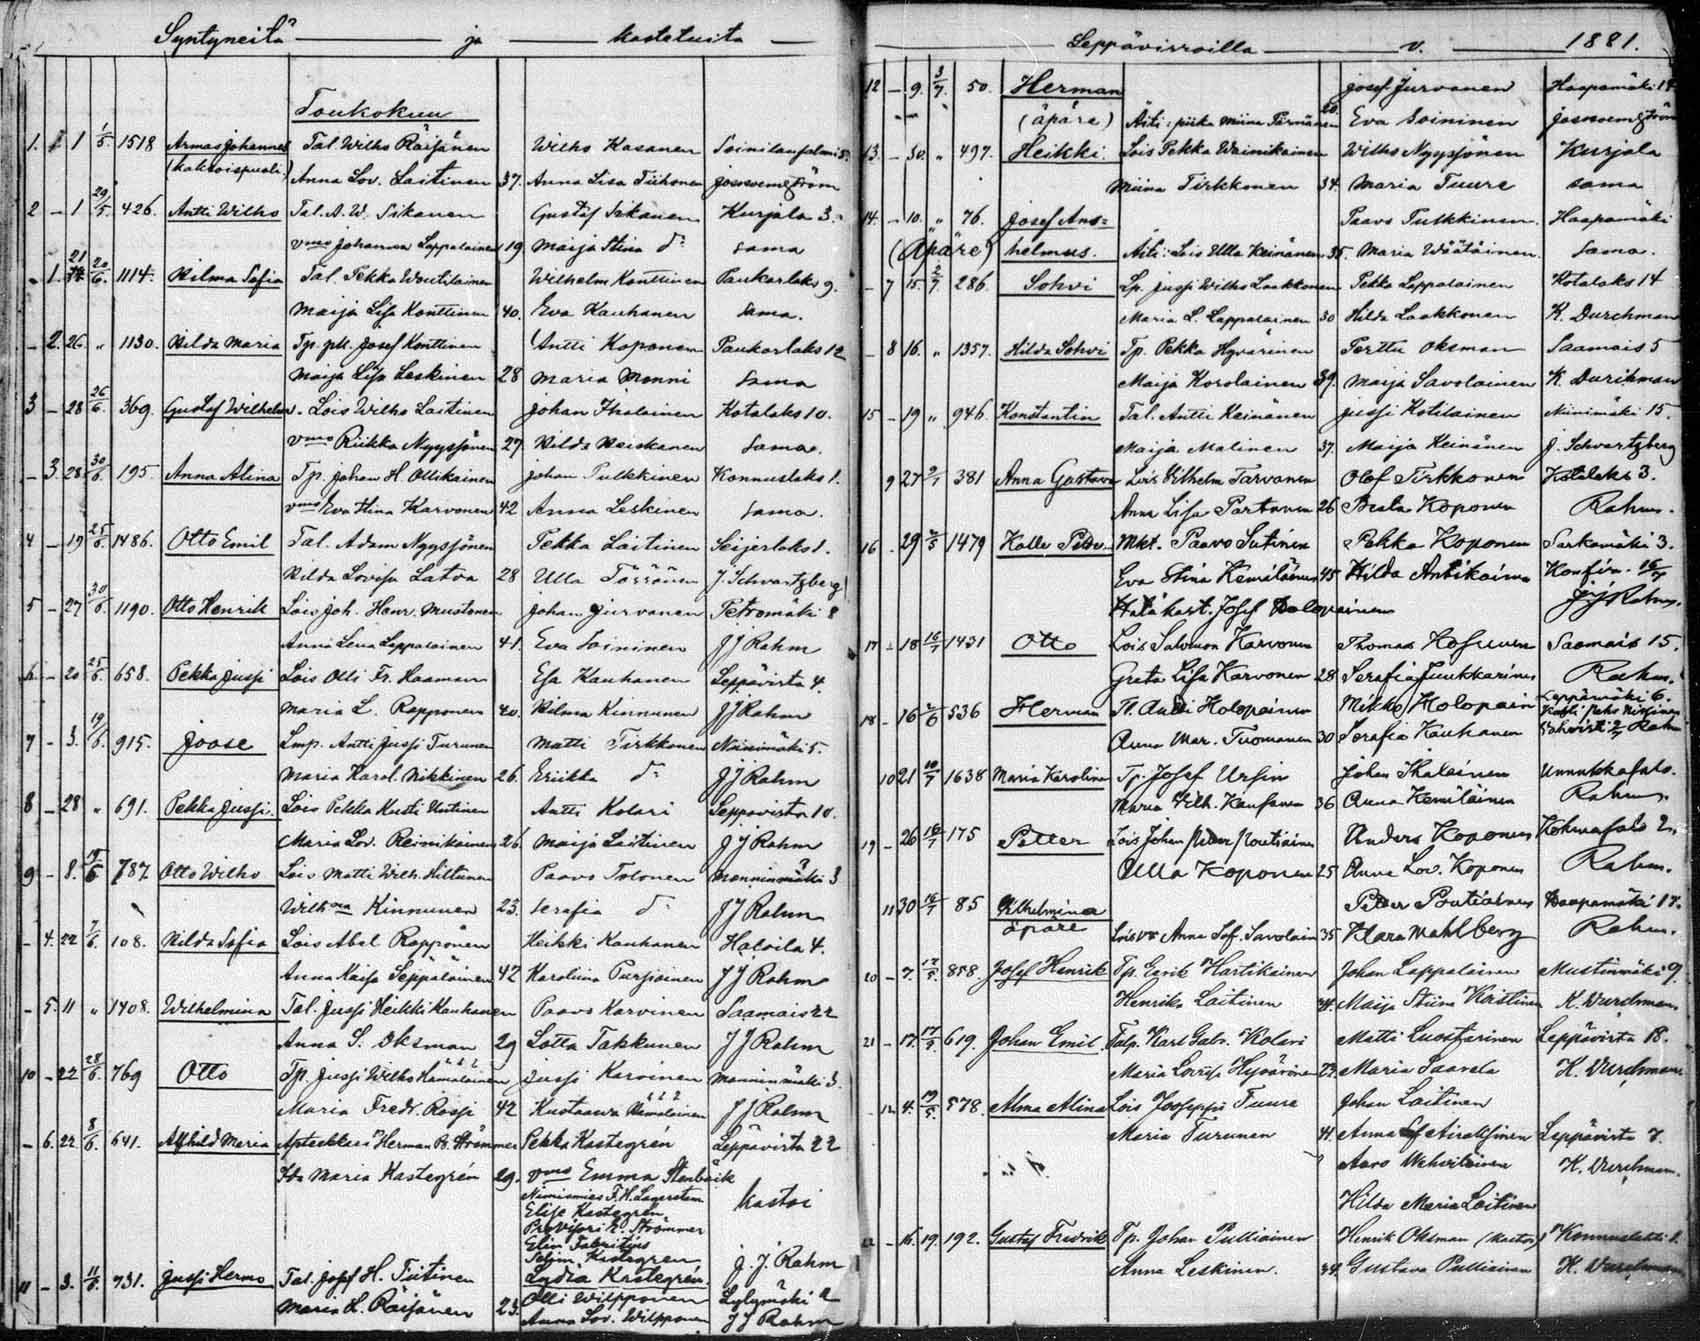 Syntyneitä ja kastetuita
Toukokuu
1. 1 1/5 1518 Armas Johannes Tal. Wilho Räisänen Wilho Kasanen Soinilansalmi 5.
(kaksoispuoli) Anna Lov. Laitinen 37. Anna Lisa Tiihonen
2 - 1 29/5 426. Antti Wilho Tal. A. W. Sikanen Gustaf Ikanen Kurjala 3.
vmo Johanna Lappalainen 19 Maija Stina d:o sama
- 1. 21 20/6 1114. Hilma Sofia Tal. Pekka Woutilainen Wilhelm Konttinen Paukarlaks 9.
Maija Lisa Konttinen 40. Eva Kauhanen sama.
- 2. 26. " 1130. Hilda Maria Tp. Josef Konttinen Antti Koponen Paukarlaks 12
Maija Lisa Leskinen 28 Maria Monni sama
3 - 28 26/6 369. Gustaf Wilhelm Lois Wilho Laitinen Johan Ikalainen Kotalaks 10.
vmo Riikka Nyyssönen 27 Hilda Keiskanen sama.
- 3. 28 30/6 195. Anna Alina Tp. Johan H. Ollikainen Johan Pulkkinen Konnuslaks 1.
vmo Eva Stina Karvonen 42 Anna Leskinen sama.
4 - 19 25/6 1486. Otto Emil Tal. Adam Nyyssönen Pekka Laitinen Seijerlaks 1.
Hilda Lovisa Latva 28 Ulla Tössönen J. Schwartzberg
5 - 27 30/6 1190. Otto Henrik Lois Joh. Henr. Mustonen Johan Jurvanen Petromäki 8
Anna Lena Lappalainen 41. Eva Soininen J J Rahm
6 - 20 25/6 658. Pekka Jussi Lois Olli Fr. Haaman Esa Kauhanen Leppävirta 4.
Maria L. Rapponen 40. Hilma Kinnunen J J Rahm
7 - 3. 19/6 915. Joose Lmp. Antti Jussi Turunen Matti Tirkkonen Niinimäki 5.
Maria Karol. Nikkinen 26. Eriikka d:o J J Rahm
8 - 28 " 691. Pekka Jussi. Lois Pekka Kusti Uutinen Antti Kolari Leppävirta 10.
Maria Lov. Reinikainen 26. Maija Laitinen J J Rahm
9 - 8. 19/6 787 Otto Wilho Lois Matti Wilh. Hiltunen Paavo Tolonen Monninmäki 3
Wilhna Kinnunen 23. Serafia d:o J J Rahm
- 4. 22 7/6 108. Hilda Sofia Lois Abel Rapponen Heikki Kauhanen Halvila 4.
Anna Kaisa Seppäläinen 42 Karolina Pursiainen J J Rahm
- 5. 11 " 1408. Wilhelmina Tal. Jussi Heikki Kauhanen Paavo Karvinen Saamais 22
Anna S. Oksman 29 Lotta Takkunen J J Rahm
10 - 22 28/6 769 Otto Tp. Jussi Wilho Hämäläinen Jussi Karvinen Monninmäki 3.
Maria Fredr. Rossi 42 Kustaava Hämäläinen J J Rahm
- 6. 22 8/6 641. Alfhild Maria Apteekkari Herman R. Strömmer Pekka Kastegrén Leppävirta 22
Ida Maria Kastegrén 29. vmo Emma Stenbäck
Nimismies F. H. Lagerstam kastoi
Elise Kastegrén
Provisori E. Strömmer
Elin Fabritius
Selim Kastegren J. J. Rahm
11 - 3. 11/6 731. Jussi Hermo Tal. Josef H. Tiitinen Lydia Kastegrén.
Olli Wilpponen Lylymäki 2
Maria L. Räisänen 23. Anna Lov. Wilpponen J J Rahm
Leppävirroilla v. 1881.
12 - 9. 3/7 50. Herman Josef Jurvanen Haapamäki 14
(äpäre) Äiti: piika Miina Pärnänen 20. Eva Soininen
13. - 30. " 497. Heikki Lois Pekka Wainikainen Wilho Nyyssönen Kurjala
Miina Tirkkonen 34. Maria Tuure sama
14. - 10. " 76. Josef Ans= Paavo Pulkkinen Haapamäki
(Äpäre) helmus. Äiti: Lois Ulla Keinänen 35. Maria Wäätäinen. sama.
- 7 15. 2/7 286. Sohvi Lp. Jussi Wilho Laakkonen Pekka Lappalainen Kotalaks 14
Maria L. Lappalainen 30 Hilda Laakkonen K. Durchman
- 8 16. " 1357. Hilda Sohvi Tp. Pekka Hyvärinen Perttu Oksman Saamais 5
Maija Korolainen 39. Maija Savolainen K. Durchman
15 - 19 " 946. Konstantin Tal. Antti Keinänen Jussi Kotilainen Niinimäki 15.
Maija Malinen 37. Maija Keinänen J. Schvartzberg
9 27 2/7 381 Anna Gustava Lois Vilhelm Tarvanen Olof Tirkkonen Kotalaks 3.
Anna Lisa Partanen 26 Beata Koponen Rahm.
16 - 29 2/5 1479 Kalle Petter Mkt. Paavo Sutinen Pekka Koponen Sarkamäki 3.
Eva Stina Kemiläinen 45 Hilda Antikainen Konfir. 16/7
Hätäkast. Josef Holopainen J J Rahm.
17 - 18 16/7 1431 Otto Lois Salomon Karvonen Thomas Kosunen Saamais 15.
Greta Lisa Karvonen 28 Serafia Juukkarinen Rahm.
18 - 16 2/6 536 Herman Tl. Antti Holopainen Mikko Holopain Leppämäki 6.
Anna Mar. Tuomanen 30 Serafia Kauhanen Rahm
10 21 10/7 1638 Maria Karolina Tp. Josef Ursin Johan Ikalainen Unnukkasalo.
Maria Vilh. Kansanen 36 Anna Kemiläinen Rahm.
19 - 26 16/7 175 Petter Lois Johan Petter Poutiainen Anders Koponen Kohmasalo 2.
Ulla Koponen 25 Anna Lov. Koponen Rahm.
11 30 16/7 85 Vilhelmina Petter Poutiainen Haapamäki 17.
äpäre Anna Sof. Savolain 35 Klara Wahlberg Rahm.
20 - 7. 17/7. 858. Josef Henrik Tp. Henrik Hartikainen Johan Lappalainen Mustinmäki 9.
Henrika Laitinen Maija Stiina Kärstinen K. Durchman
21 - 17. 17/7. 619. Johan Emil. Talp. Karl Gabr. Kolari Matti Luostarinen Leppävirta 18.
Maria Lovisa Hyvärinen 22. Maria Saarela K. Durchman
- 12 4. 19/7. 578. Alma Alina Lois Josephi Tuure Johan Laitinen
Maria Turunen 41. Anna Sof Airaksinen Leppävirta 7.
Aaro Wehviläinen K. Durchman.
Hilda Maria Laitinen
22 - 16. 19. 192. Gustaf Fredrik Tp. Johan Pulliainen Henrik Oksman (kastoi) Konnuslahti 1.
Anna Leskinen. 34. Gustava Pulliainen K. Durchman